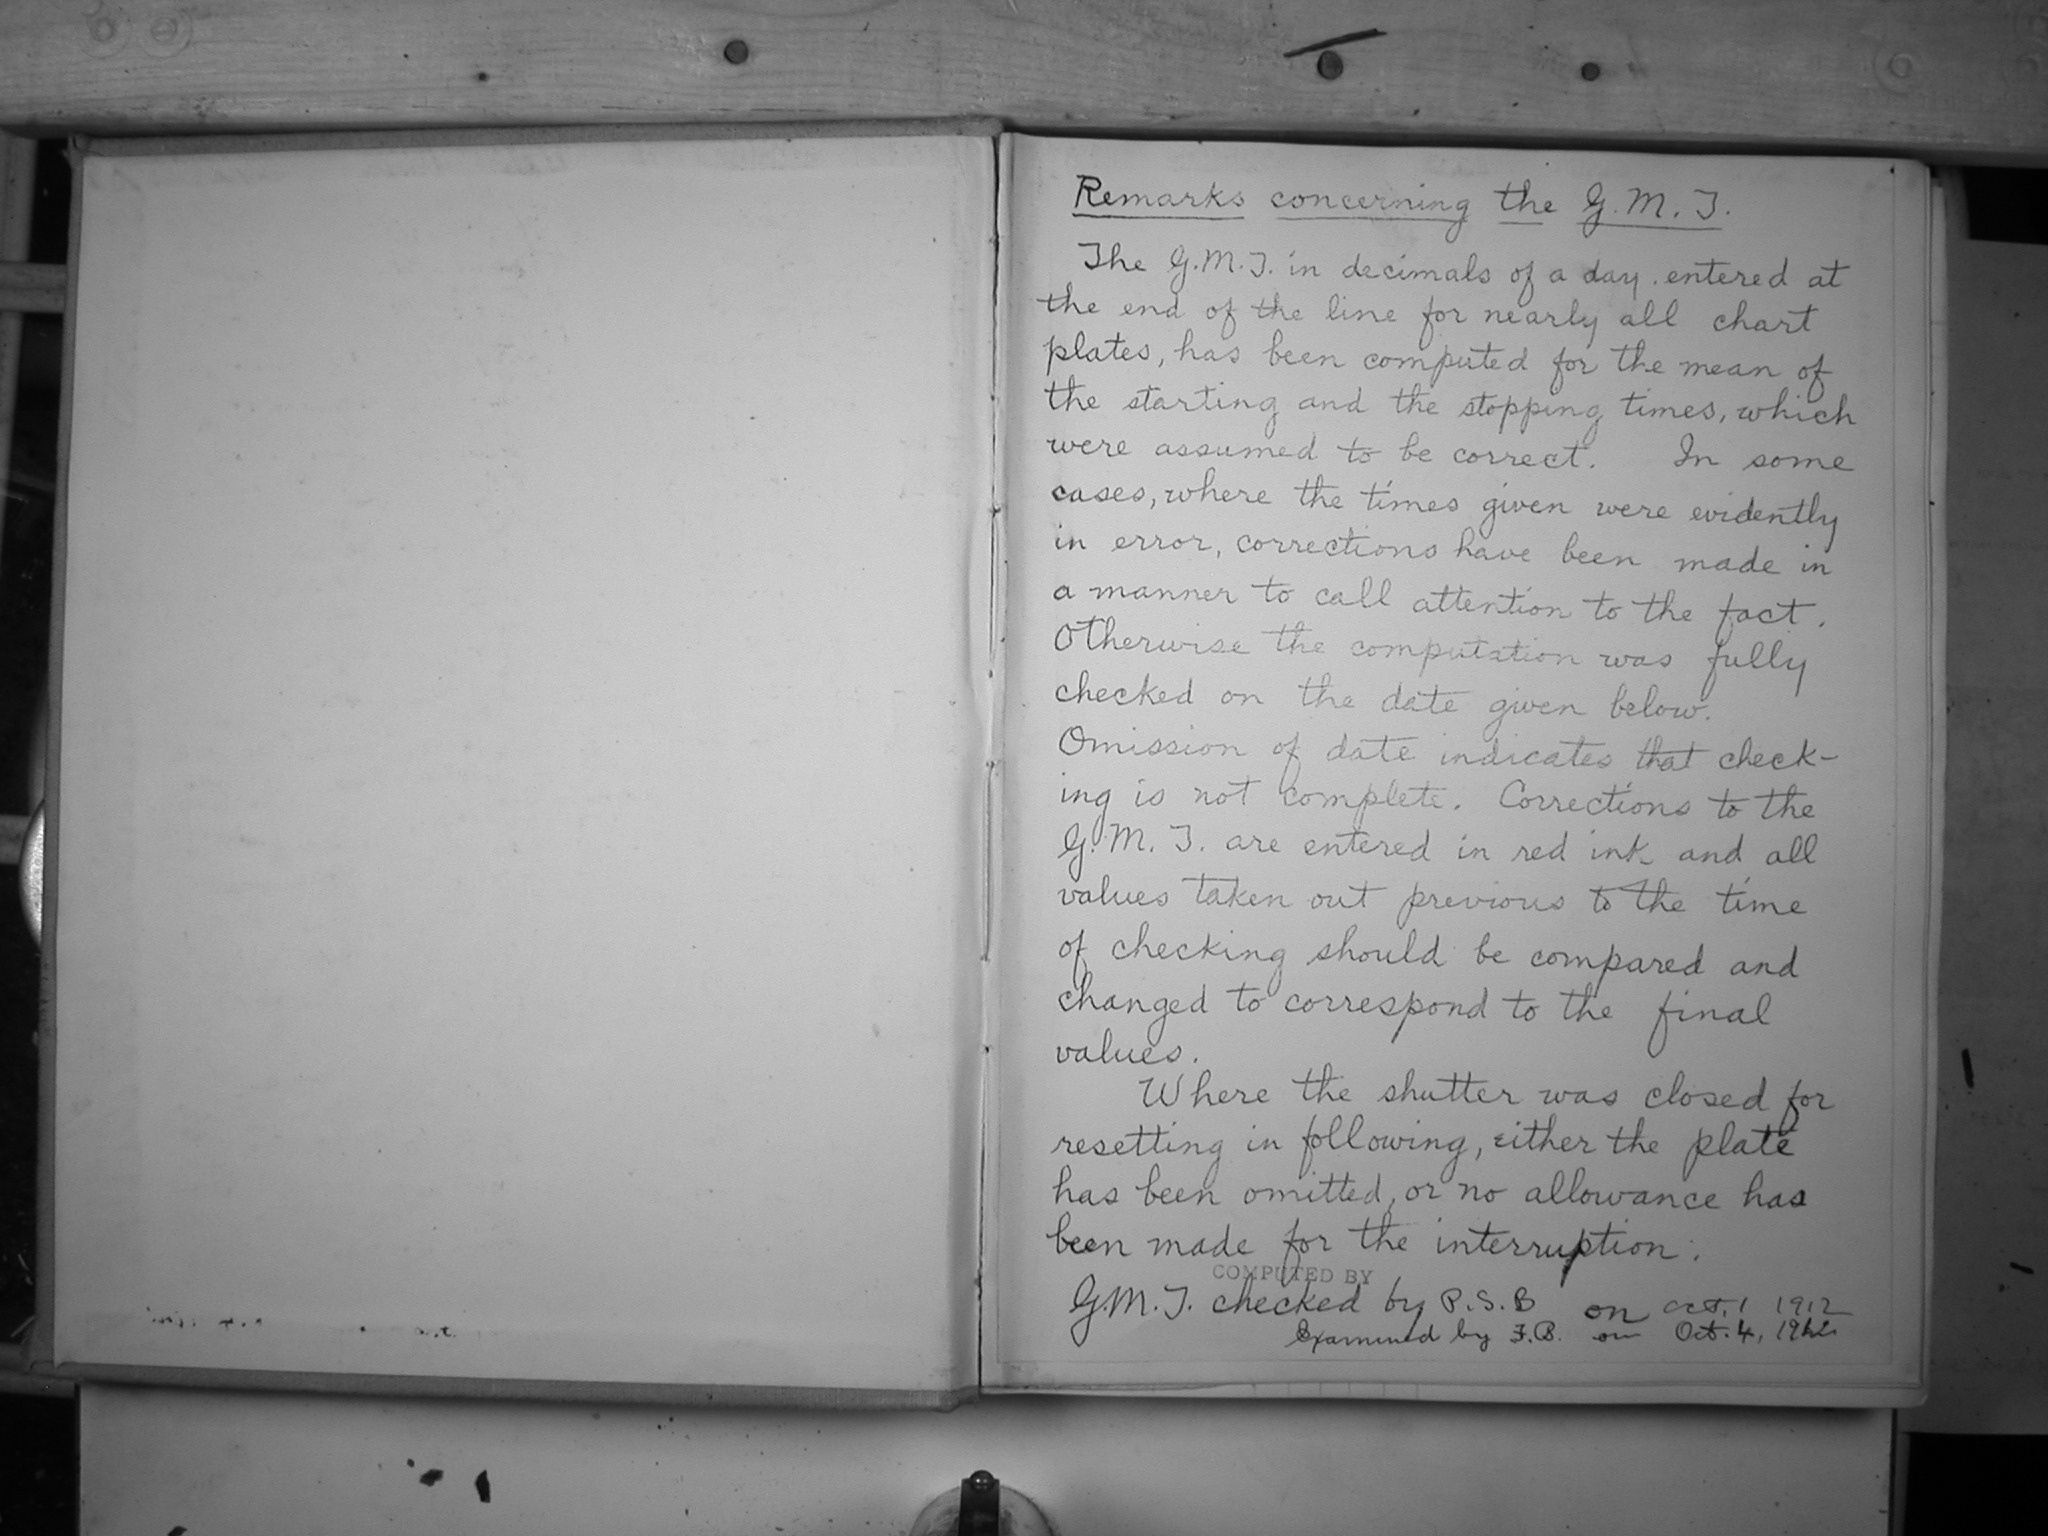 Remarks concerning the G.M.T.
The G.M.T. in decimals of a day. entered at
the end of the line for nearly all chart
plates, has been computed for the mean of
the starting and the stopping times, which
were assumed to be correct. In some
cases, where the times given were evidently
in error, corrections have been made in
a manner to call attention to the fact.
Otherwise the computation was fully
checked on the date given below.
Omission of date indicates that check-
ing is not complete. Corrections to the
G.M.T. are entered in red ink and all
values taken out previous to the time
of checking should be compared and
changed to correspond to the final
values.
Where the shutter was closed for
resetting in following, either the plate
has been omitted, or no allowance has
been made for the interruption.
COMPUTED BY
G.M.T. checked by P.S.B on Oct. 1 1912
Examined by F.B. on Oct. 4, 1912